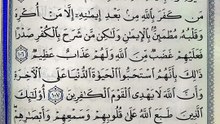 مَن كَفَرَ بِاللَّهِ مِنۢ بَعْدِ إِيمَٰنِهِۦٓ إِلَّا مَنْ أُكْرِهَ
وَقَلْبُهُۥ مُطْمَئِنٌّۢ بِالْإِيمَٰنِ وَلَٰكِن مَّن شَرَحَ بِالْكُفْرِ صَدْرًا
فَعَلَيْهِمْ غَضَبٌ مِّنَ اللَّهِ وَلَهُمْ عَذَابٌ عَظِيمٌ ١٠٦
ذَٰلِكَ بِأَنَّهُمُ اسْتَحَبُّوا الْحَيَوٰةَ الدُّنْيَا عَلَى الْءَاخِرَةِ
وَأَنَّ اللَّهَ لَا يَهْدِي الْقَوْمَ الْكَٰفِرِينَ ١٠٧ أُو۟لَٰٓئِكَ
الَّذِينَ طَبَعَ اللَّهُ عَلَىٰ قُلُوبِهِمْ وَسَمْعِهِمْ وَأَبْصَٰرِهِمْ